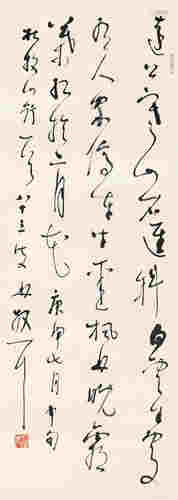 遠上寒山石徑斜白雲生處
有人家停車坐愛楓林晚霜
葉紅於二月花庚申七月中旬
杜牧山行一首八十三叟林散耳